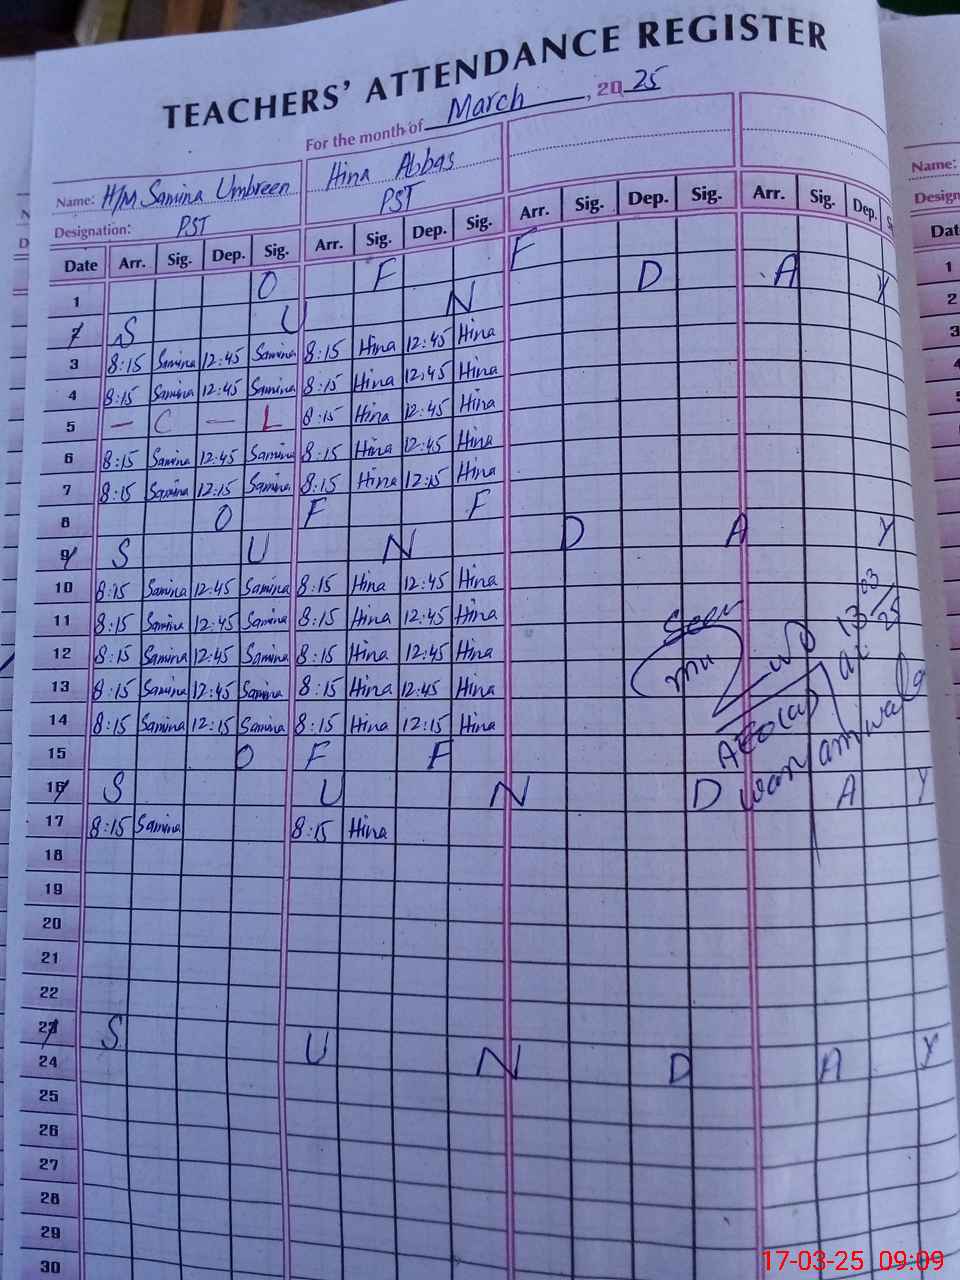 TEACHERS' ATTENDANCE REGISTER
For the month of March, 2025
Name: H/M Samina Umbreen Hina Abbas
Designation: PST PST
Date Arr. Sig. Dep. Sig. Arr. Sig. Dep. Sig. Arr. Sig. Dep. Sig. Arr. Sig. Dep.
1 O F F
2 S U N D A Y
3 8:15 Samina 12:45 Samina 8:15 Hina 12:45 Hina
4 8:15 Samina 12:45 Samina 8:15 Hina 12:45 Hina
5 — C — L 8:15 Hina 12:45 Hina
6 8:15 Samina 12:45 Samina 8:15 Hina 12:45 Hina
7 8:15 Samina 12:15 Samina 8:15 Hina 12:15 Hina
8 O F F
9 S U N D A Y
10 8:15 Samina 12:45 Samina 8:15 Hina 12:45 Hina
11 8:15 Samina 12:45 Samina 8:15 Hina 12:45 Hina
12 8:15 Samina 12:45 Samina 8:15 Hina 12:45 Hina
13 8:15 Samina 12:45 Samina 8:15 Hina 12:45 Hina
14 8:15 Samina 12:15 Samina 8:15 Hina 12:15 Hina
Seen
13 03/25
AEO
15 O F F
16 S U N D A Y
17 8:15 Samina 8:15 Hina
18
19
20
21
22
23 S U N D A Y
24
25
26
27
28
29
30
Name:
Design
Dat
1
2
3
17-03-25 09:09